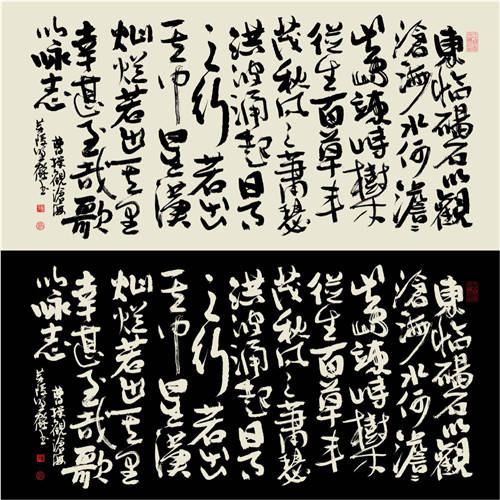 東临碣石以觀
滄海水何澹々
山島竦峙樹木
丛生百草丰
茂秋风萧瑟
洪波涌起日月
之行若出
其中星漢
灿烂若出其里
幸甚至哉歌
以咏志
曹操觀滄海
東临碣石以觀
滄海水何澹々
山島竦峙樹木
丛生百草丰
茂秋风萧瑟
洪波涌起日月
之行若出
其中星漢
灿烂若出其里
幸甚至哉歌
以咏志
曹操觀滄海